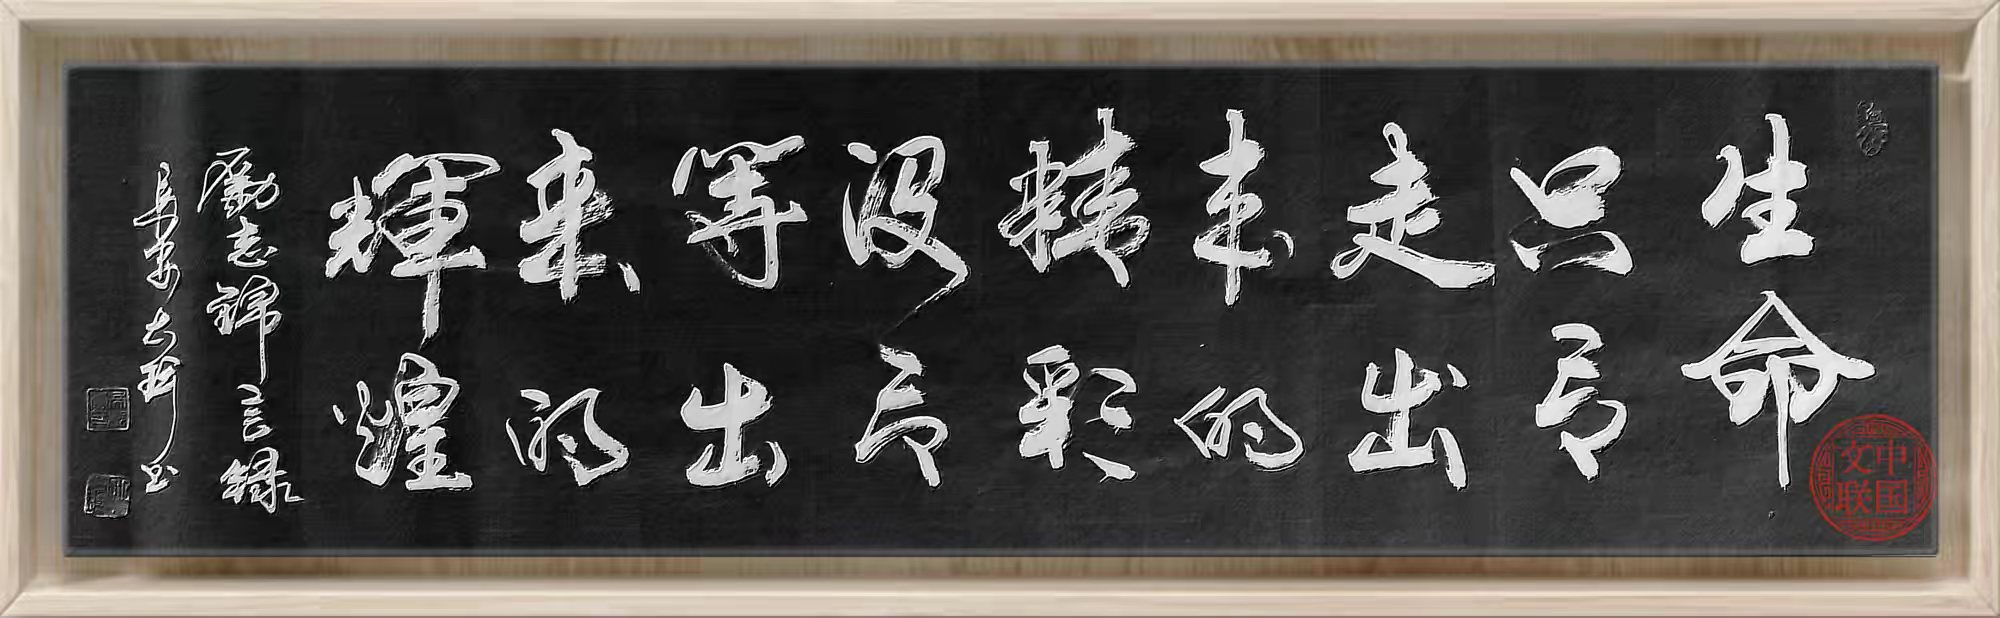 生命
只有
走出
来的
精彩
没有
等出
来的
輝煌
励志錦言録
书
中国
文联